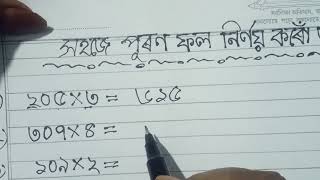 সহজে পূৰণ ফল নিৰ্ণয় কৰোঁ
২০৫×৩ = ৬১৫
৩০৭×৪ =
১০৯×২ =